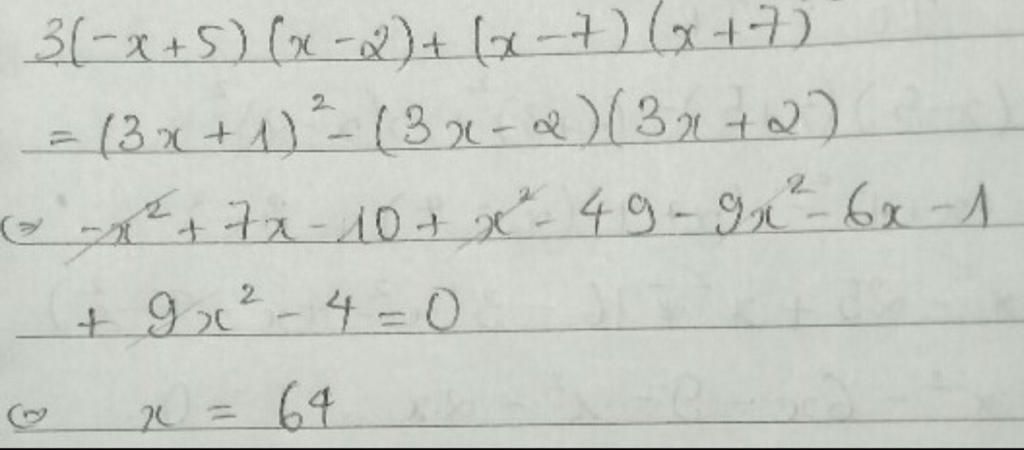 3(-x+5)(x-2)+(x-7)(x+7)
=(3x+1)²-(3x-2)(3x+2)
⇔ -x²+7x-10+x²-49-9x²-6x-1
+9x²-4=0
⇔ x=64